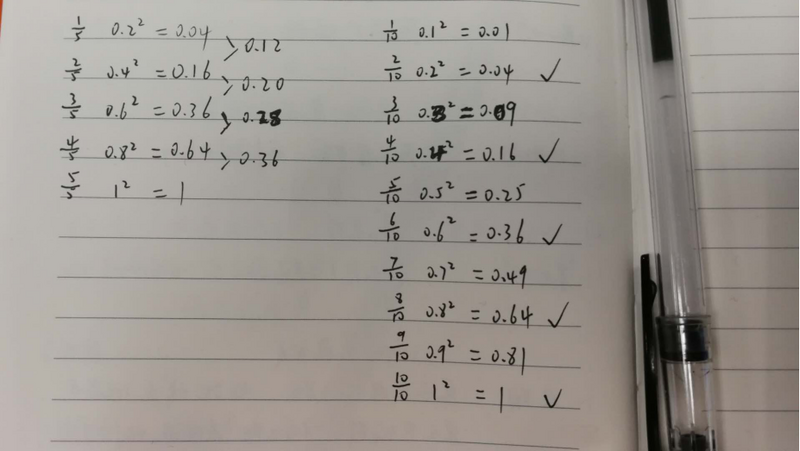 1/5 0.2² = 0.04
> 0.12
2/5 0.4² = 0.16
> 0.20
3/5 0.6² = 0.36
> 0.28
4/5 0.8² = 0.64
> 0.36
5/5 1² = 1
1/10 0.1² = 0.01
2/10 0.2² = 0.04 ✓
3/10 0.3² = 0.09
4/10 0.4² = 0.16 ✓
5/10 0.5² = 0.25
6/10 0.6² = 0.36 ✓
7/10 0.7² = 0.49
8/10 0.8² = 0.64 ✓
9/10 0.9² = 0.81
10/10 1² = 1 ✓